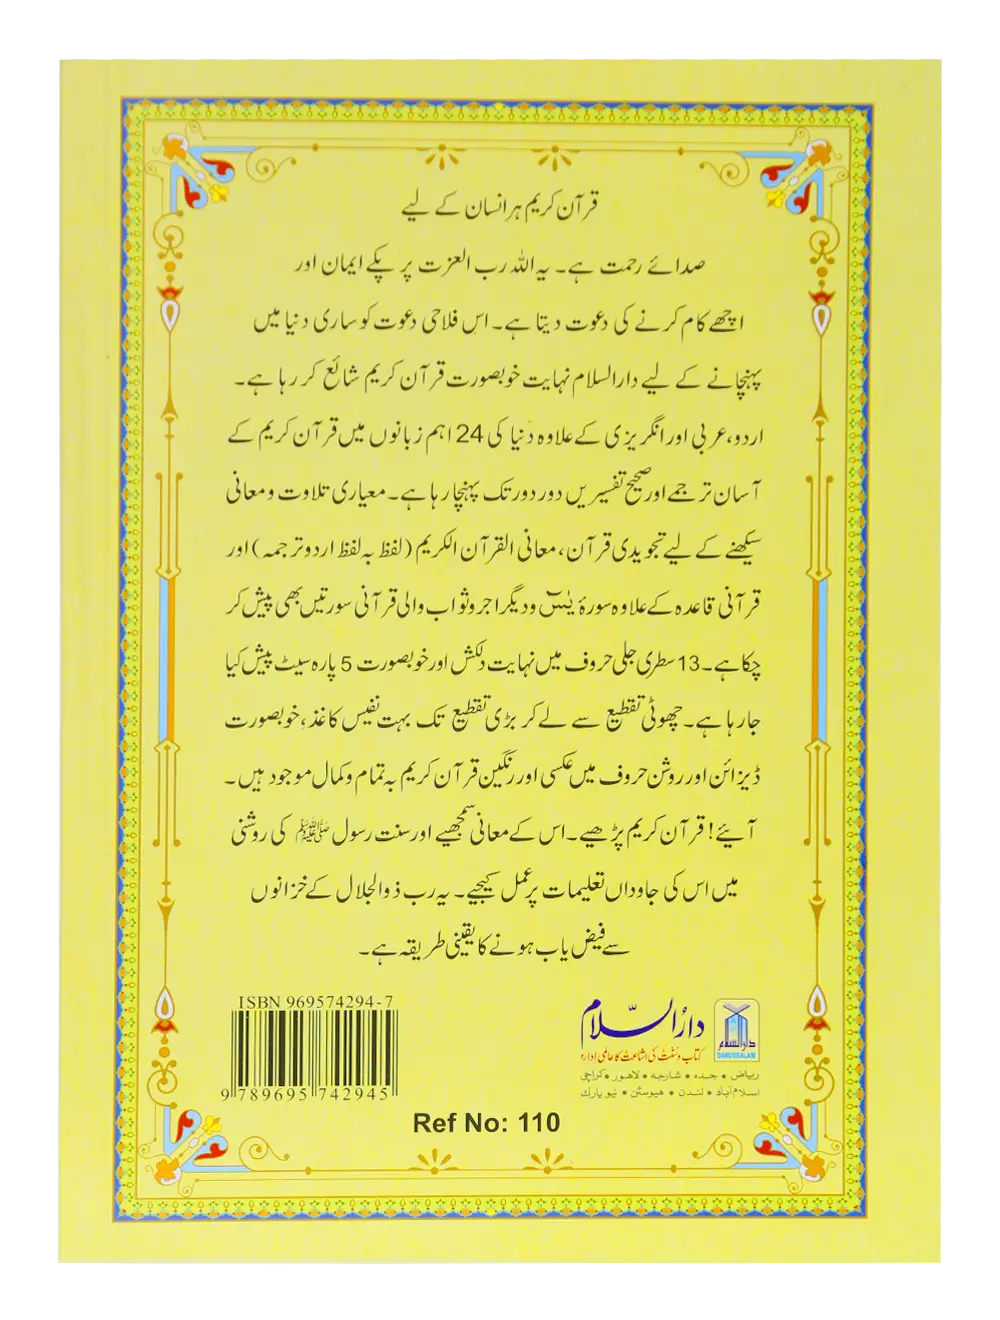 قرآن کریم ہر انسان کے لیے
صدائے رحمت ہے۔ یہ اللہ رب العزت پر پکے ایمان اور
اچھے کام کرنے کی دعوت دیتا ہے۔ اس فلاحی دعوت کو ساری دنیا میں
پہنچانے کے لیے دارالسلام نہایت خوبصورت قرآن کریم شائع کر رہا ہے۔
اردو، عربی اور انگریزی کے علاوہ دنیا کی 24 اہم زبانوں میں قرآن کریم کے
آسان ترجمے اور صحیح تفسیریں دور دور تک پہنچا رہا ہے۔ معیاری تلاوت و معانی
سیکھنے کے لیے تجویدی قرآن، معانی القرآن الکریم (لفظ بہ لفظ اردو ترجمہ) اور
قرآنی قاعدہ کے علاوہ سورۂ یٰسٓ و دیگر اجر و ثواب والی قرآنی سورتیں بھی پیش کر
چکا ہے۔ 13 سطری جلی حروف میں نہایت دلکش اور خوبصورت 5 پارہ سیٹ پیش کیا
جا رہا ہے۔ چھوٹی تقطیع سے لے کر بڑی تقطیع تک بہت نفیس کاغذ، خوبصورت
ڈیزائن اور روشن حروف میں عکسی اور رنگین قرآن کریم بہ تمام و کمال موجود ہیں۔
آیئے! قرآن کریم پڑھیے۔ اس کے معانی سمجھیے اور سنت رسول ﷺ کی روشنی
میں اس کی جاوداں تعلیمات پر عمل کیجیے۔ یہ رب ذوالجلال کے خزانوں
سے فیض یاب ہونے کا یقینی طریقہ ہے۔
ISBN 969574294-7
9 789695 742945
دارالسلام
کتاب و سنت کی اشاعت کا عالمی ادارہ
ریاض • جدہ • شارجہ • لاہور • کراچی
اسلام آباد • لندن • ہیوسٹن • نیویارک
دارالسلام
DARUSSALAM
Ref No: 110